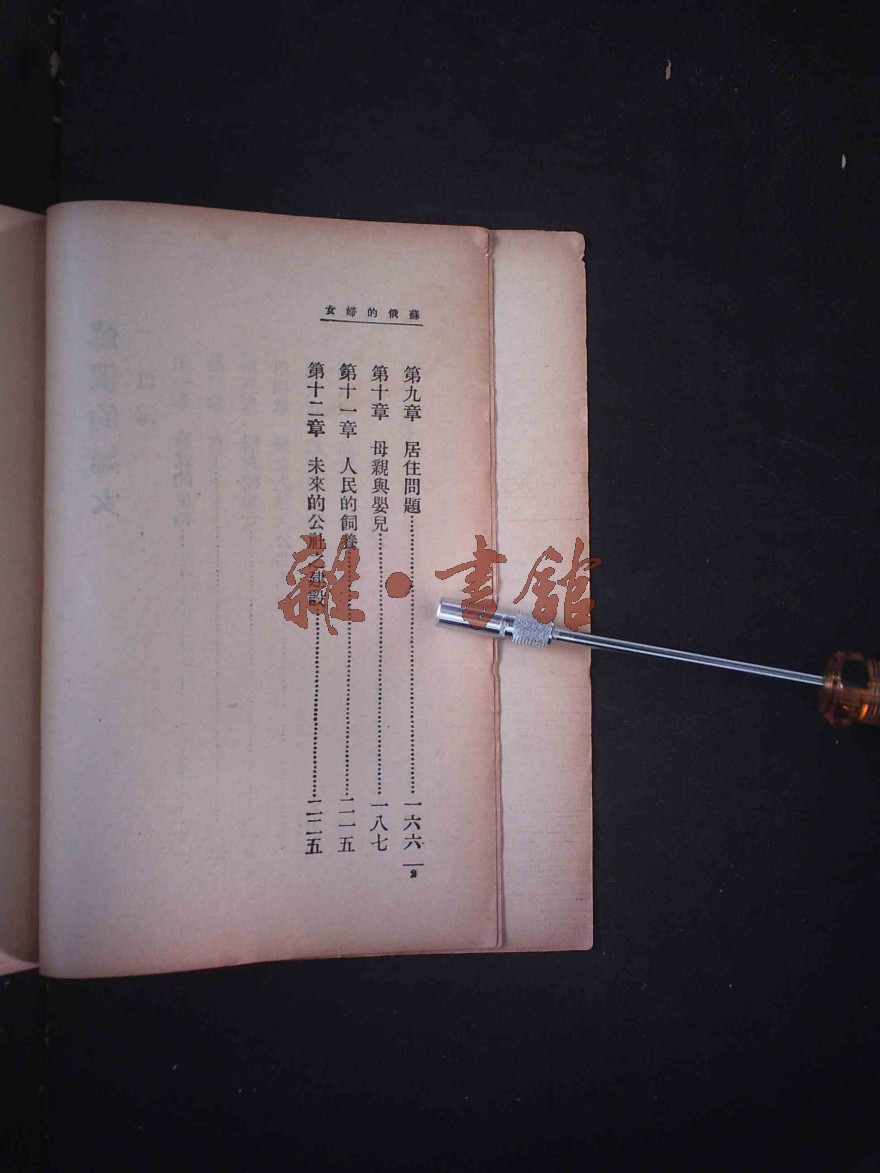 蘇俄的婦女
第九章 居住問題……一六六
第十章 母親與嬰兒……一八七
第十一章 人民的飼養……二一五
第十二章 未來的公社之建設……二二五
2
雜·書館